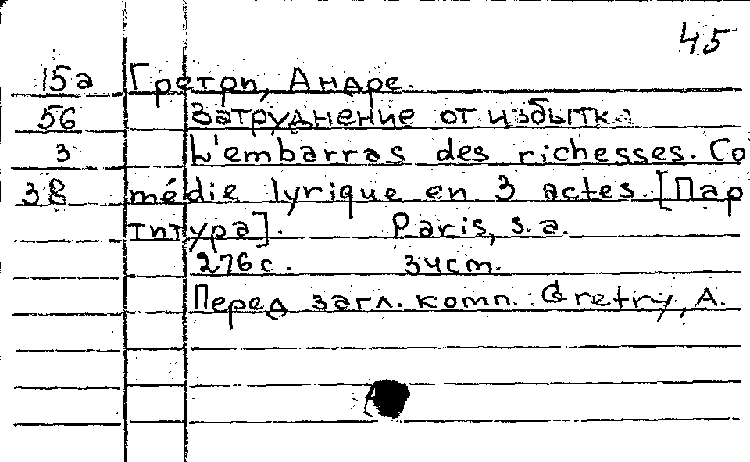 45
15а Гретри, Андре.
56 Затруднение от избытка
3 L'embarras des richesses. Co
38 médie lyrique en 3 actes. [Пар
титура]. Paris, s.a.
276 с. 34 cm.
Перед загл. комп.: Gretry, A.